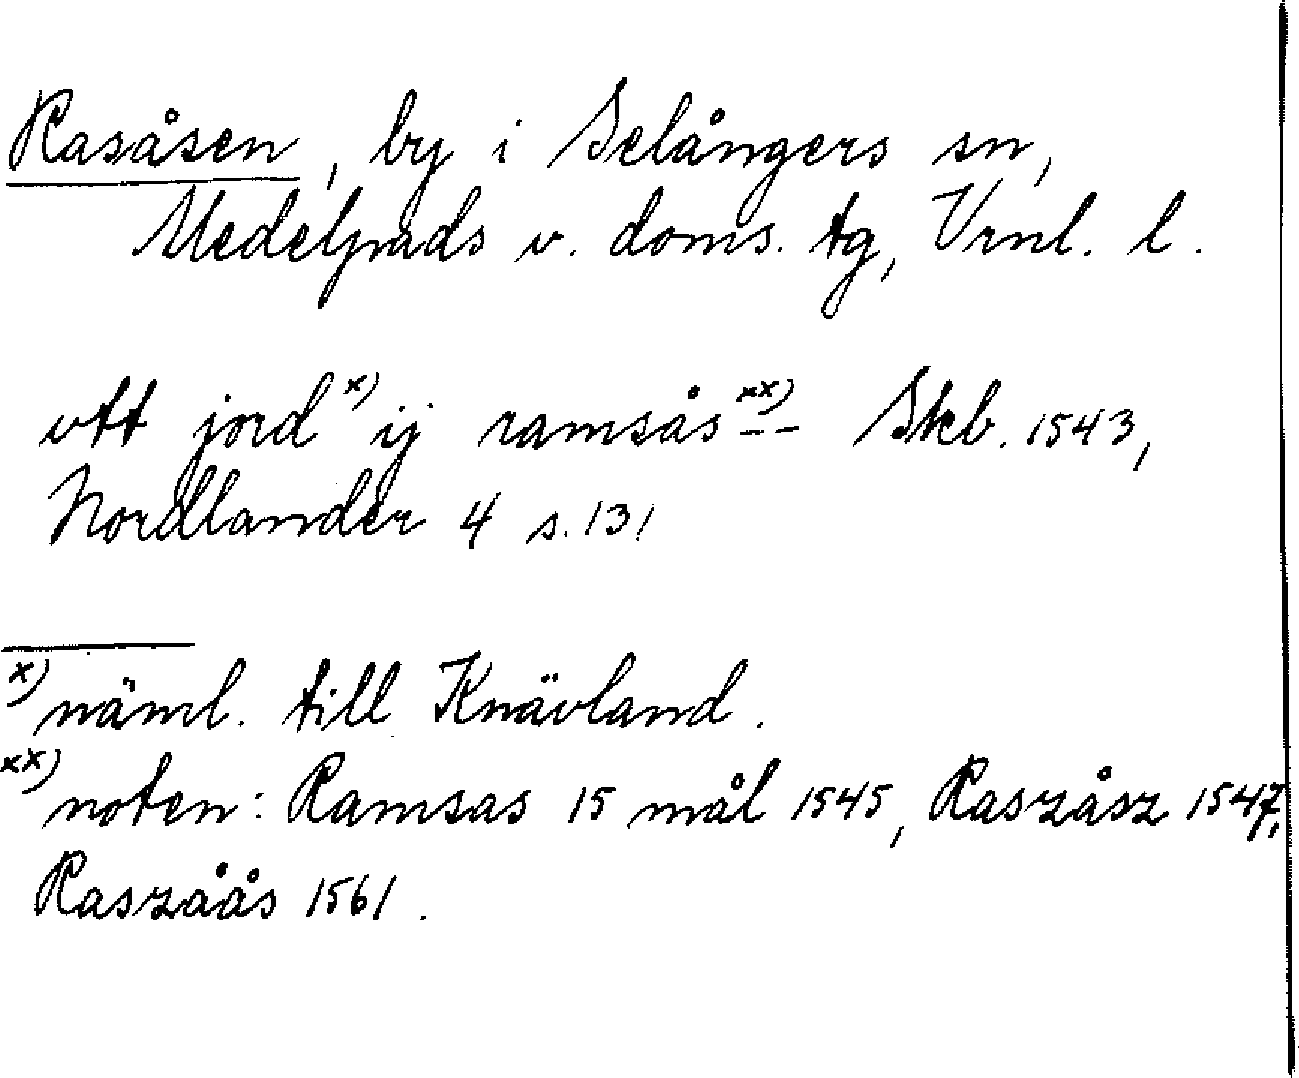 Rasåsen, by i Selångers sn,
Medelpads v. doms. tg, Vrnl. l.
vtt jord x) ij ramsås xx) -- Skb. 1543,
Nordlander 4 s. 131
x) näml. till Knävland.
xx) noten: Ramsas 15 mål 1545, Raszåsz 1547,
Raszåås 1561.